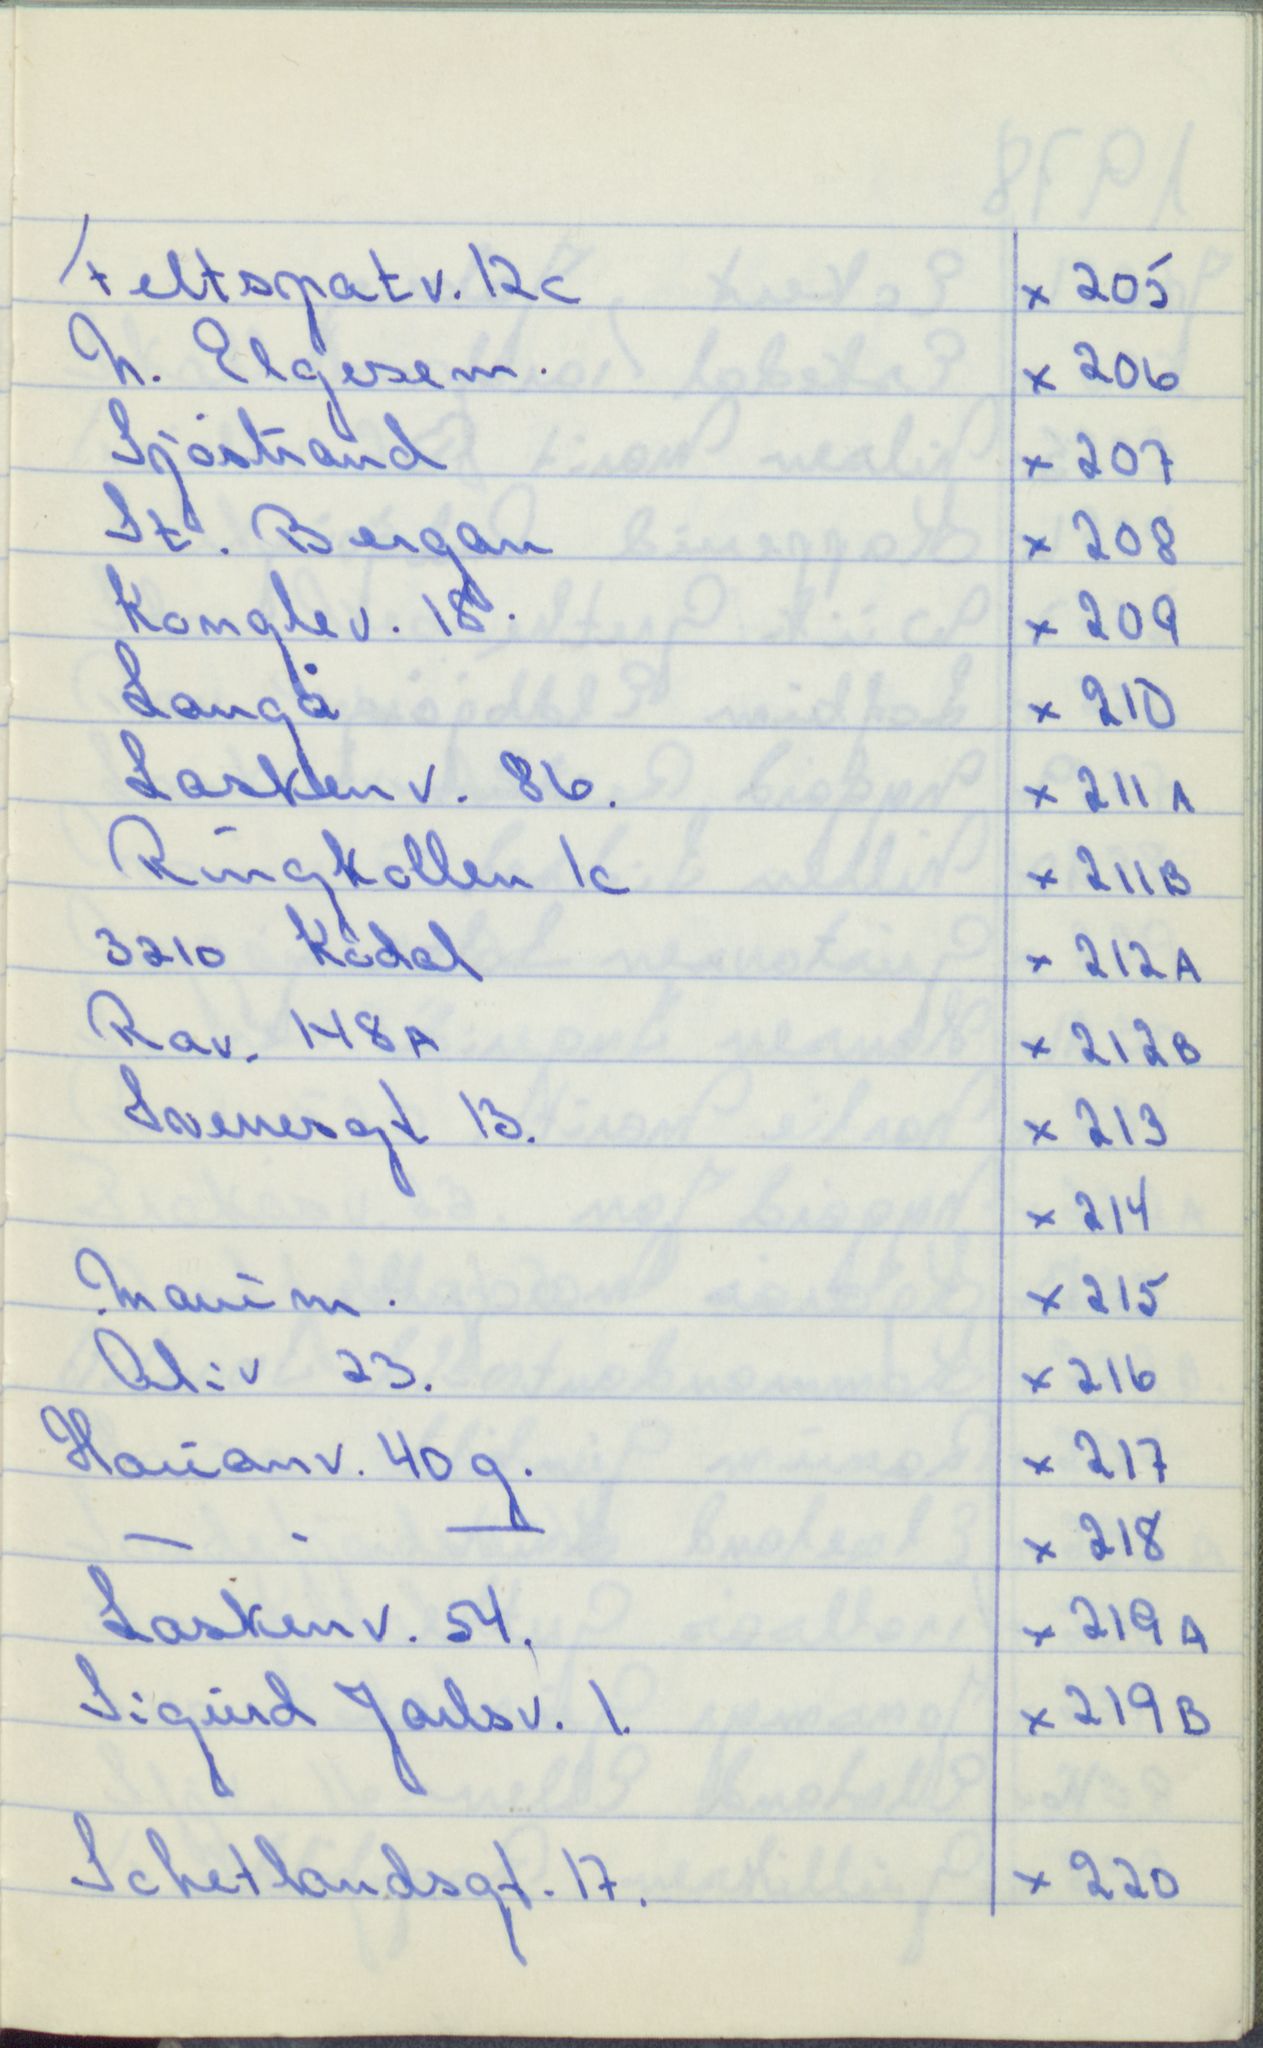 Feltspatv. 12c x 205
N. Elgesem. x 206
Sjöstrand x 207
St. Bergan x 208
Konglev. 18. x 209
Langå x 210
Laskenv. 86. x 211A
Ringkollen 1c x 211B
3210 Kodal x 212A
Rav. 148A x 212B
Sverresgt 13. x 213
x 214
x 215
Oliv 23. x 216
Hauanv. 40 g. x 217
— - — x 218
Laskenv. 54. x 219A
Sigurd Jarlsv. 1. x 219B
Schetlandsgt. 17. x 220